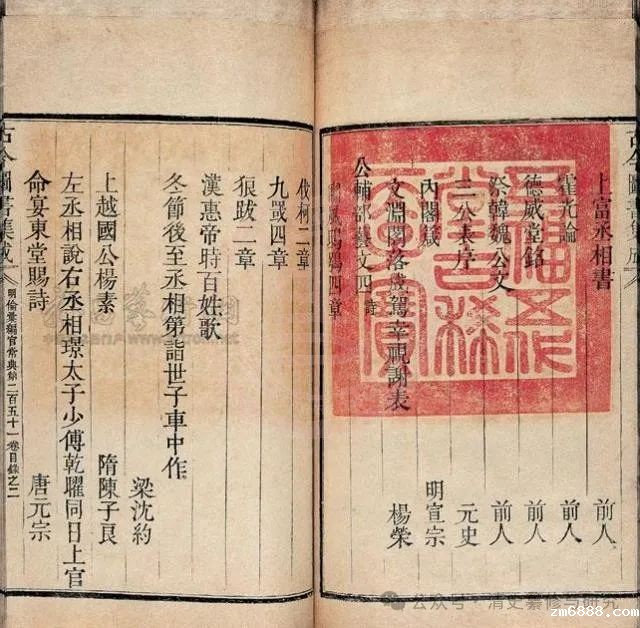 古今圖書集成
上富丞相書 前人
霍光論 前人
德威堂銘 前人
祭韓魏公文 前人
三公表序 元史
內閣箴 明宣宗
文淵閣落成駕幸視謝表 楊榮
公輔部藝文四 詩
豳風鴟鴞四章
伐柯二章
九罭四章
狼跋二章
漢惠帝時百姓歌
冬節後至丞相第詣世子車中作 梁沈約
上越國公楊素 隋陳子良
左丞相說右丞相璟太子少傅乾曜同日上官
命宴東堂賜詩 唐元宗
古今圖書集成 明倫彙編官常典第二百五十一卷目錄之二
五福五代
堂古稀
天子寶
公众号·清史纂修与研究
zm6888.com